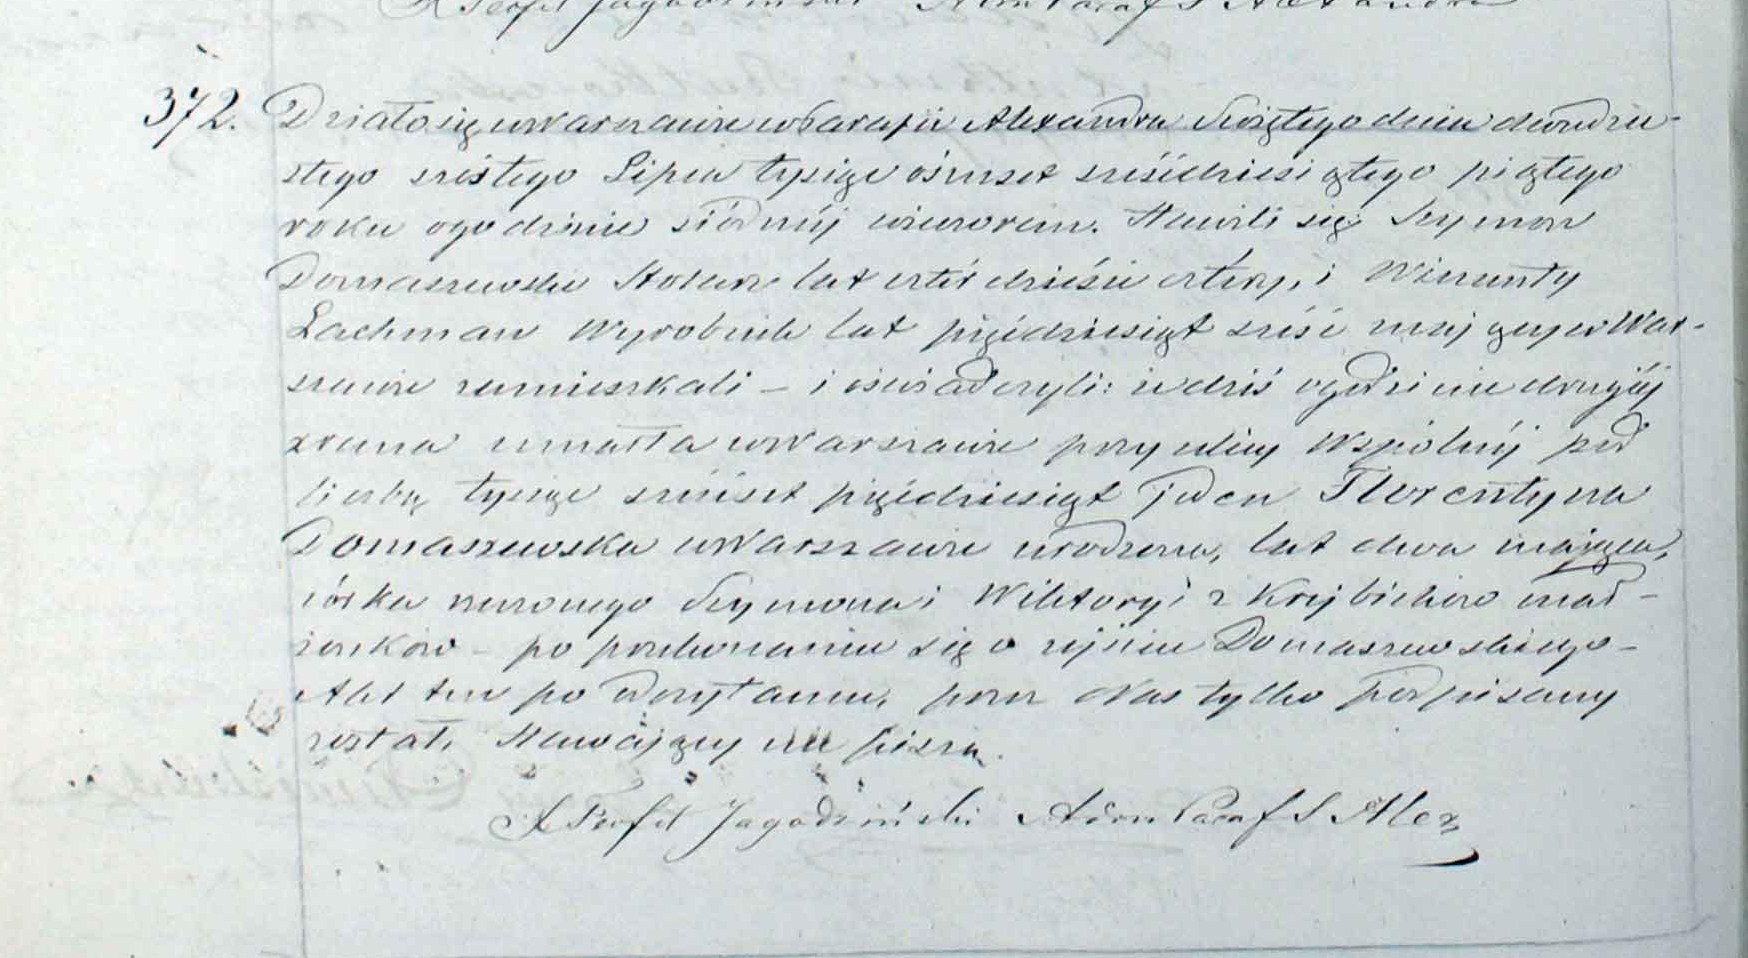 X Teofil Jagodziński Adm Paraf S Alexandra
372. Działo się w Warszawie w Parafii Alexandra Świętego dnia dwudzie-
stego szóstego Lipca tysiąc ośmset sześćdziesiątego piątego
roku o godzinie siódméj wieczorem. Stawili się Szymon
Domaszewski Stolarz lat czterdzieści cztery, i Wincenty
Lachman Wyrobnik lat pięćdziesiąt sześć mający w War-
szawie zamieszkali – i oświadczyli: że dziś o godzinie drugiéj
z rana umarła w Warszawie przy ulicy Wspólnéj pod
liczbą tysiąc sześćset pięćdziesiąt jeden Florentyna
Domaszewska w Warszawie urodzona, lat dwa mająca,
córka Szymona i Wiktoryi z Krejbichów mał-
żonków – po przekonaniu się o zejściu Domaszewskiego –
Akt ten po odczytaniu, przez Nas tylko podpisany
został. Stawający nie piszą.
X Teofil Jagodziński Adm Paraf S Alex